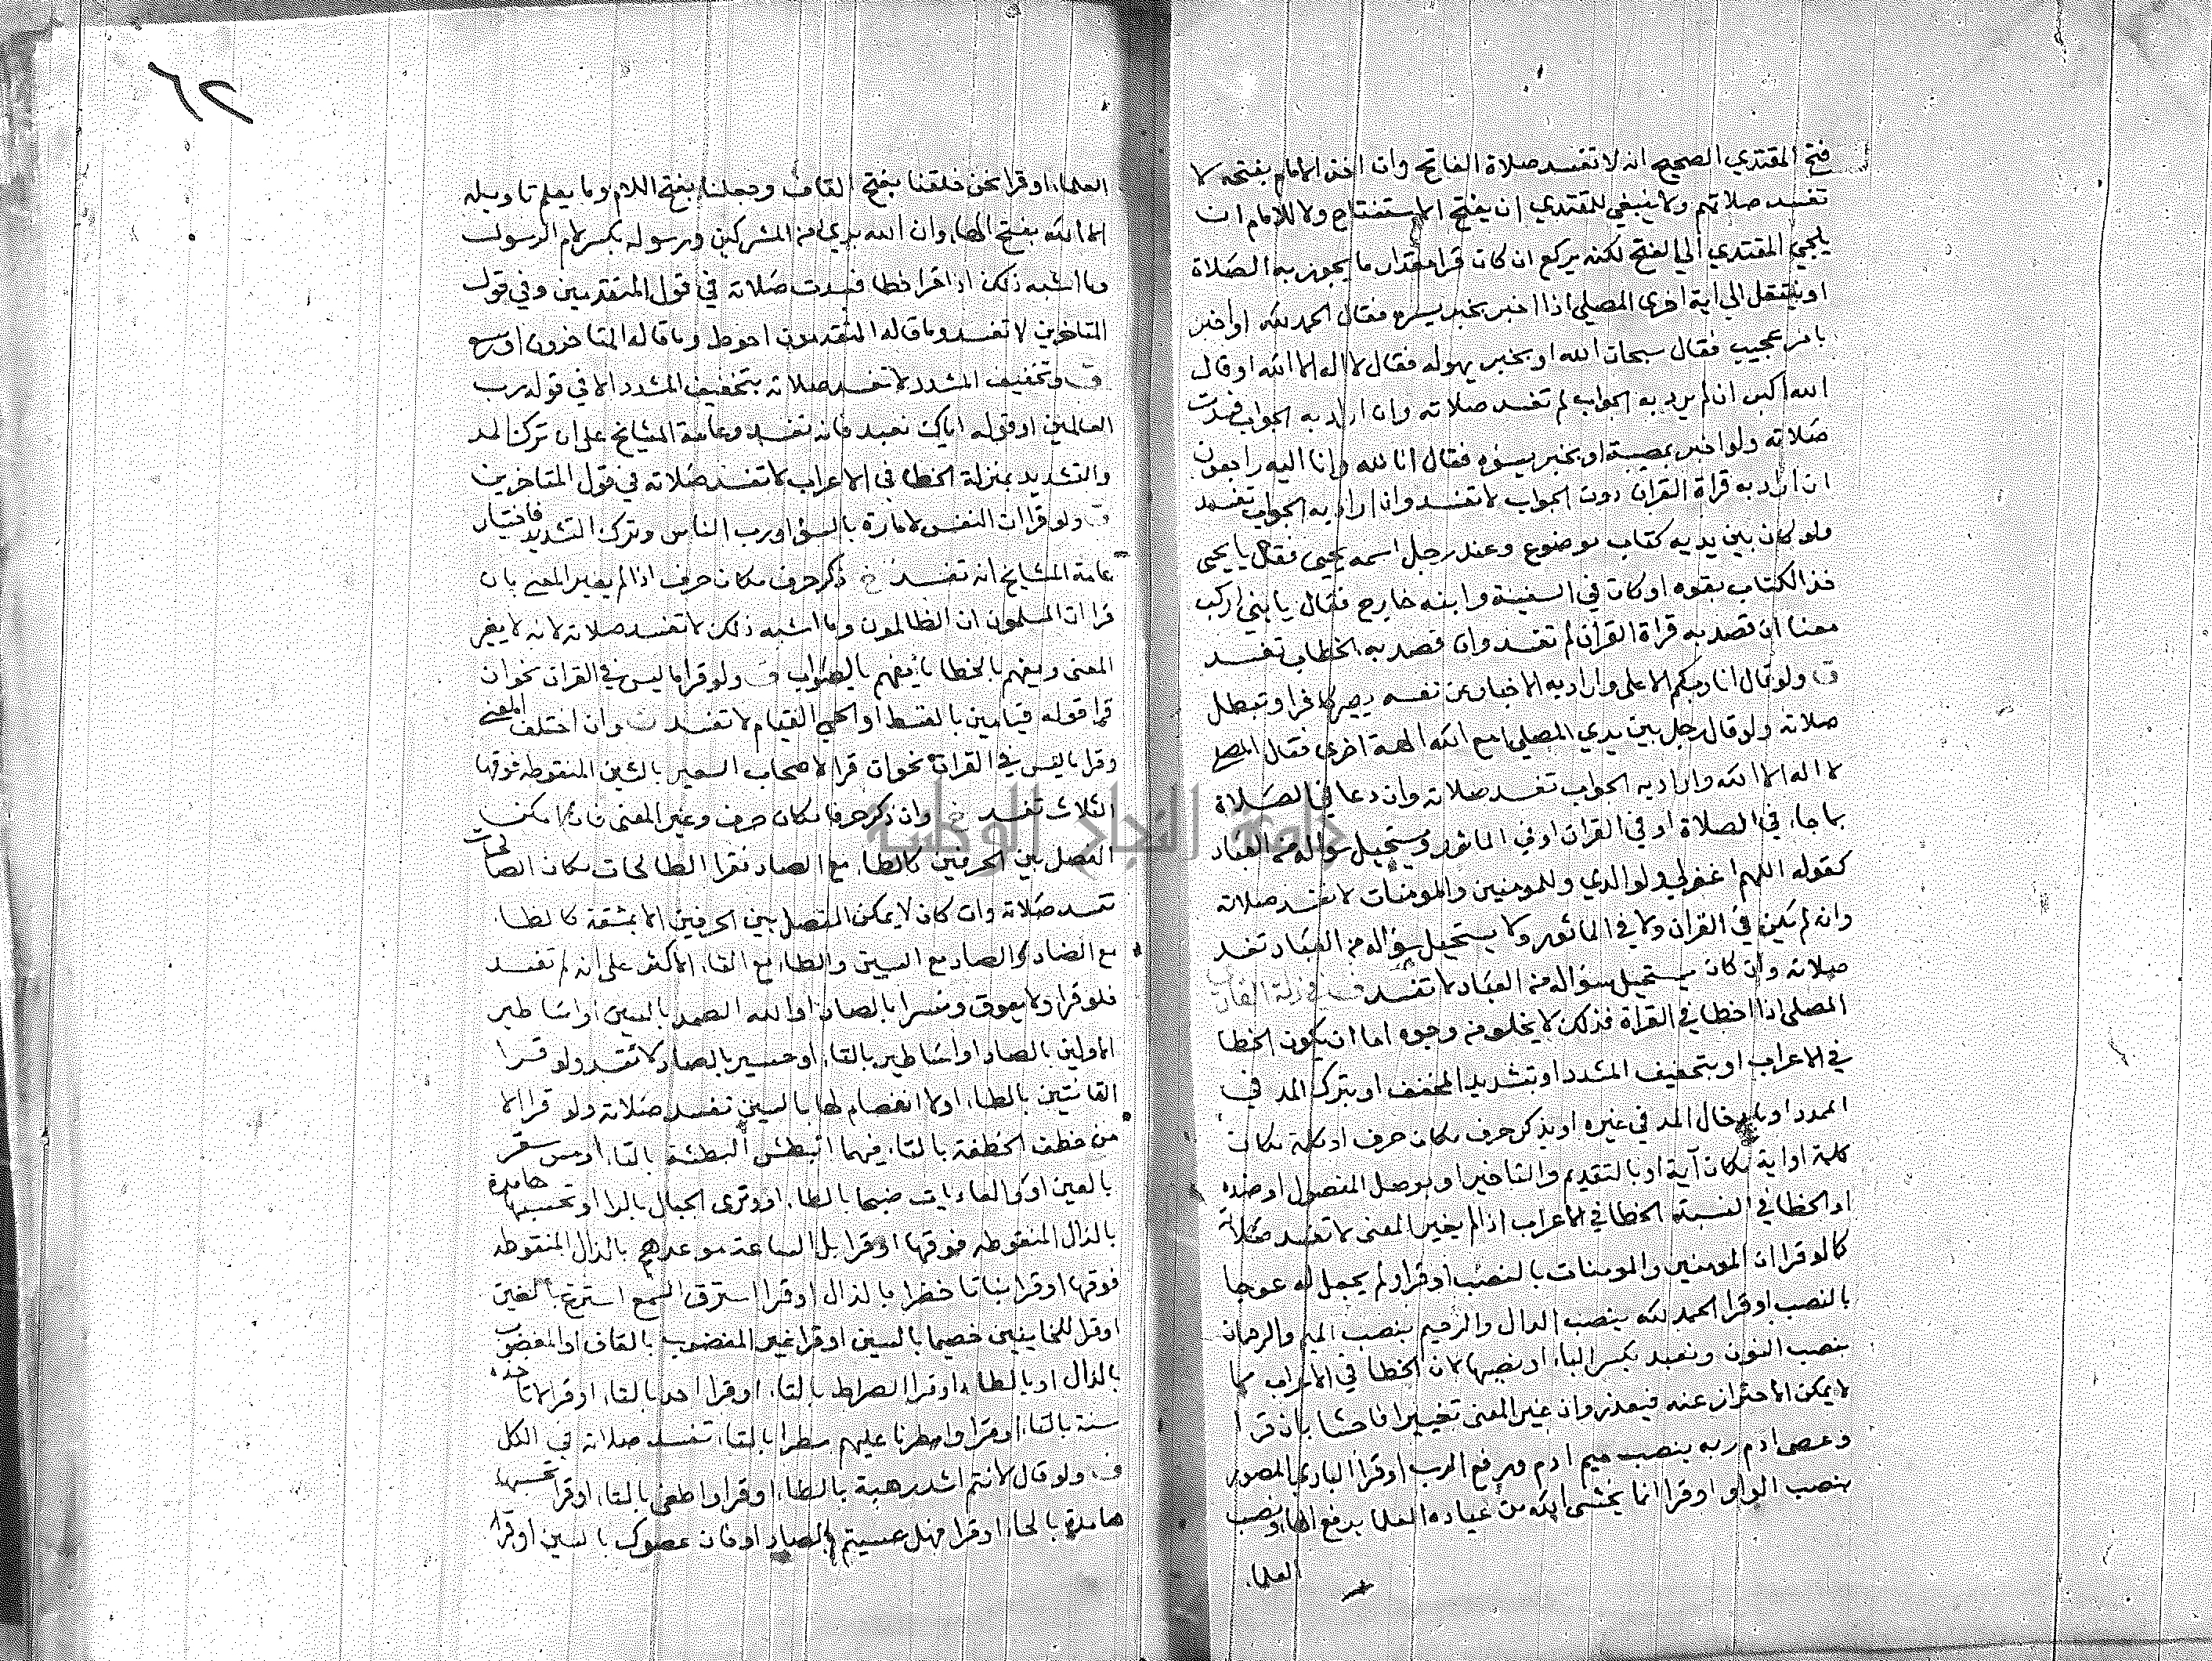 فتح المقتدي الصحيح انه لا تفسد صلاة الفاتح وان اخذ الامام بفتحه لا
تفسد صلاتهم ولا ينبغي للمقتدي ان يفتح الاستفتاح ولا للامام ان
يلجئ المقتدي الى الفتح لكنه يركع ان كان قرا مقدار ما يجوز به الصلاة
او ينتقل الى اية اخرى المصلي اذا اخبر بخبر يسره فقال الحمد لله او اخبر
بامر عجيب فقال سبحان الله او بخبر يهوله فقال لا اله الا الله او قال
الله اكبر ان لم يرد به الجواب لم تفسد صلاته وان اراد به الجواب فسدت
صلاته ولو اخبر بمصيبة او بخبر يسؤه فقال انا لله وانا اليه راجعون
ان اراد به قراة القران دون الجواب لا تفسد وان اراد به الجواب تفسد
ولو كان بين يديه كتاب موضوع وعند رجل اسمه يحيى فقال يا يحيى
خذ الكتاب بقوه او كان في السفينة وابنه خارج فقال يا بني اركب
معنا ان قصد به قراة القران لم تفسد وان قصد به الخطاب تفسد
ق ولو قال انا ربكم الاعلى واراد به الاخبار عن نفسه يصير كافرا وتبطل
صلاته ولو قال رجل بين يدي المصلي امع الله الهة اخرى فقال المصلي
لا اله الا الله واراد به الجواب تفسد صلاته وان دعا في الصلاة
بما جاء في الصلاة او في القران او في الماثور ويستحيل سؤاله من العباد
كقوله اللهم اغفر لي ولوالدي وللمومنين والمومنات لا تفسد صلاته
وانه لم يكن في القران ولا في الماثور ولا يستحيل سؤاله من العباد تفسد
صلاته وان كان يستحيل سؤاله من العباد لا تفسد ق في زلة القاري
المصلي اذا اخطا في القراة فذلك لا يخلو من وجوه اما ان يكون الخطا
في الاعراب او بتخفيف المشدد او بتشديد المخفف او بترك المد في
الممدد او بادخال المد في غيره او بذكر حرف مكان حرف او كلمة مكان
كلمة او اية مكان آية او بالتقديم والتاخير او بوصل المفصول او ضده
او الخطا في النسبة الخطا في الاعراب اذا لم يغير المعنى لا تفسد صلاته
كما لو قرا ان المومنين والمومنات بالنصب او قرا ولم يجعل له عوجا
بالنصب او قرا الحمد لله بنصب الدال والرحيم بنصب الميم والرحمان
بنصب النون ونعبد بكسر الباء او نصبها لان الخطا في الاعراب مما
لا يمكن الاحتراز عنه فيعذر وان غير المعنى تغييرا فاحشا بان قرا
وعصى ادم ربه بنصب ميم ادم ورفع الرب او قرا الباري المصور
بنصب الواو او قرا انما يخشى الله من عباده العلما برفع الهاء ونصب
العلماء
٦٢
العلماء او قرا نحن خلقنا بفتح القاف وجعلنا بفتح اللام وما يعلم تاويله
الا الله بفتح الهاء وان الله بريء من المشركين ورسوله بكسر لام الرسول
وما اشبه ذلك اذا قرا خطا فسدت صلاته في قول المتقدمين وفي قول
المتاخرين لا تفسد وما قاله المتقدمون احوط وما قاله المتاخرون اوسع
ق وتخفيف المشدد لا تفسد صلاته بتخفيف المشدد الا في قوله رب
العالمين او قوله اياك نعبد فانه تفسد وعامة المشايخ على ان ترك المد
والتشديد بمنزلة الخطا في الاعراب لا تفسد صلاته في قول المتاخرين
ق ولو قرا ان النفس لامارة بالسؤ او رب الناس وترك التشديد فاختيار
عامة المشايخ انه تفسد خ ذكر حرف مكان حرف اذا لم يغير المعنى بان
قرا ان المسلمون ان الظالمون وما اشبه ذلك لا تفسد صلاته لانه لا يغير
المعنى ويفهم بالخطا ما يفهم بالصواب ق ولو قرا ما ليس في القران نحو ان
قرا قوله قيامين بالقسط او الحي القيام لا تفسد وان اختلف المعنى
وقرا ما ليس في القران نحو ان قرا لاصحاب السعير بالشين المنقوطه فوقها
الثلاث تفسد خ وان ذكر حرفا مكان حرف وغير المعنى فان امكن
الفصل بين الحرفين كالطاء مع الصاد فقرا الطالحات مكان الصالحات
تفسد صلاته وان كان لا يمكن الفصل بين الحرفين الا بمشقة كالظاء
مع الضاد والصاد مع السين والطاء مع التاء الاكثر على انه لم تفسد
فلو قرا ولا يعوق ونسرا بالصاد او الله الصمد بالسين او اساطير
الاولين بالصاد او اساطير بالتاء او حسير بالصاد لا تفسد ولو قرا
القانتين بالطاء او لا انفصام لها بالسين تفسد صلاته ولو قرا الا
من خطف الخطفة بالتاء فيهما البطش البطشة بالتاء او مس سقر
بالعين او والعاديات ضبحا بالطاء او وترى الجبال بالرا او تحسبها جامدة
بالذال المنقوطه فوقها او قرا بل الساعة موعدهم بالذال المنقوطه
فوقها او قرا نباتا خضرا بالذال او قرا استرق السمع استرغ بالغين
او قل للخاينين خصيما بالسين او قرا غير المغضوب بالقاف او المغضوب
بالذال او بالظاء او قرا الصراط بالتاء او قرا احد بالتاء او قرا لا تاخذه
سنة بالثاء او قرا وامطرنا عليهم مطرا بالتاء تفسد صلاته في الكل
ق ولو قال لانتم اشد رهبة بالطاء او قرا واطغى بالتاء او قرا تحسبها
هامدة بالحاء او قرا فهل عسيتم بالصاد او فان عصوك بالسين او قرا
جامعة النجاح الوطنية